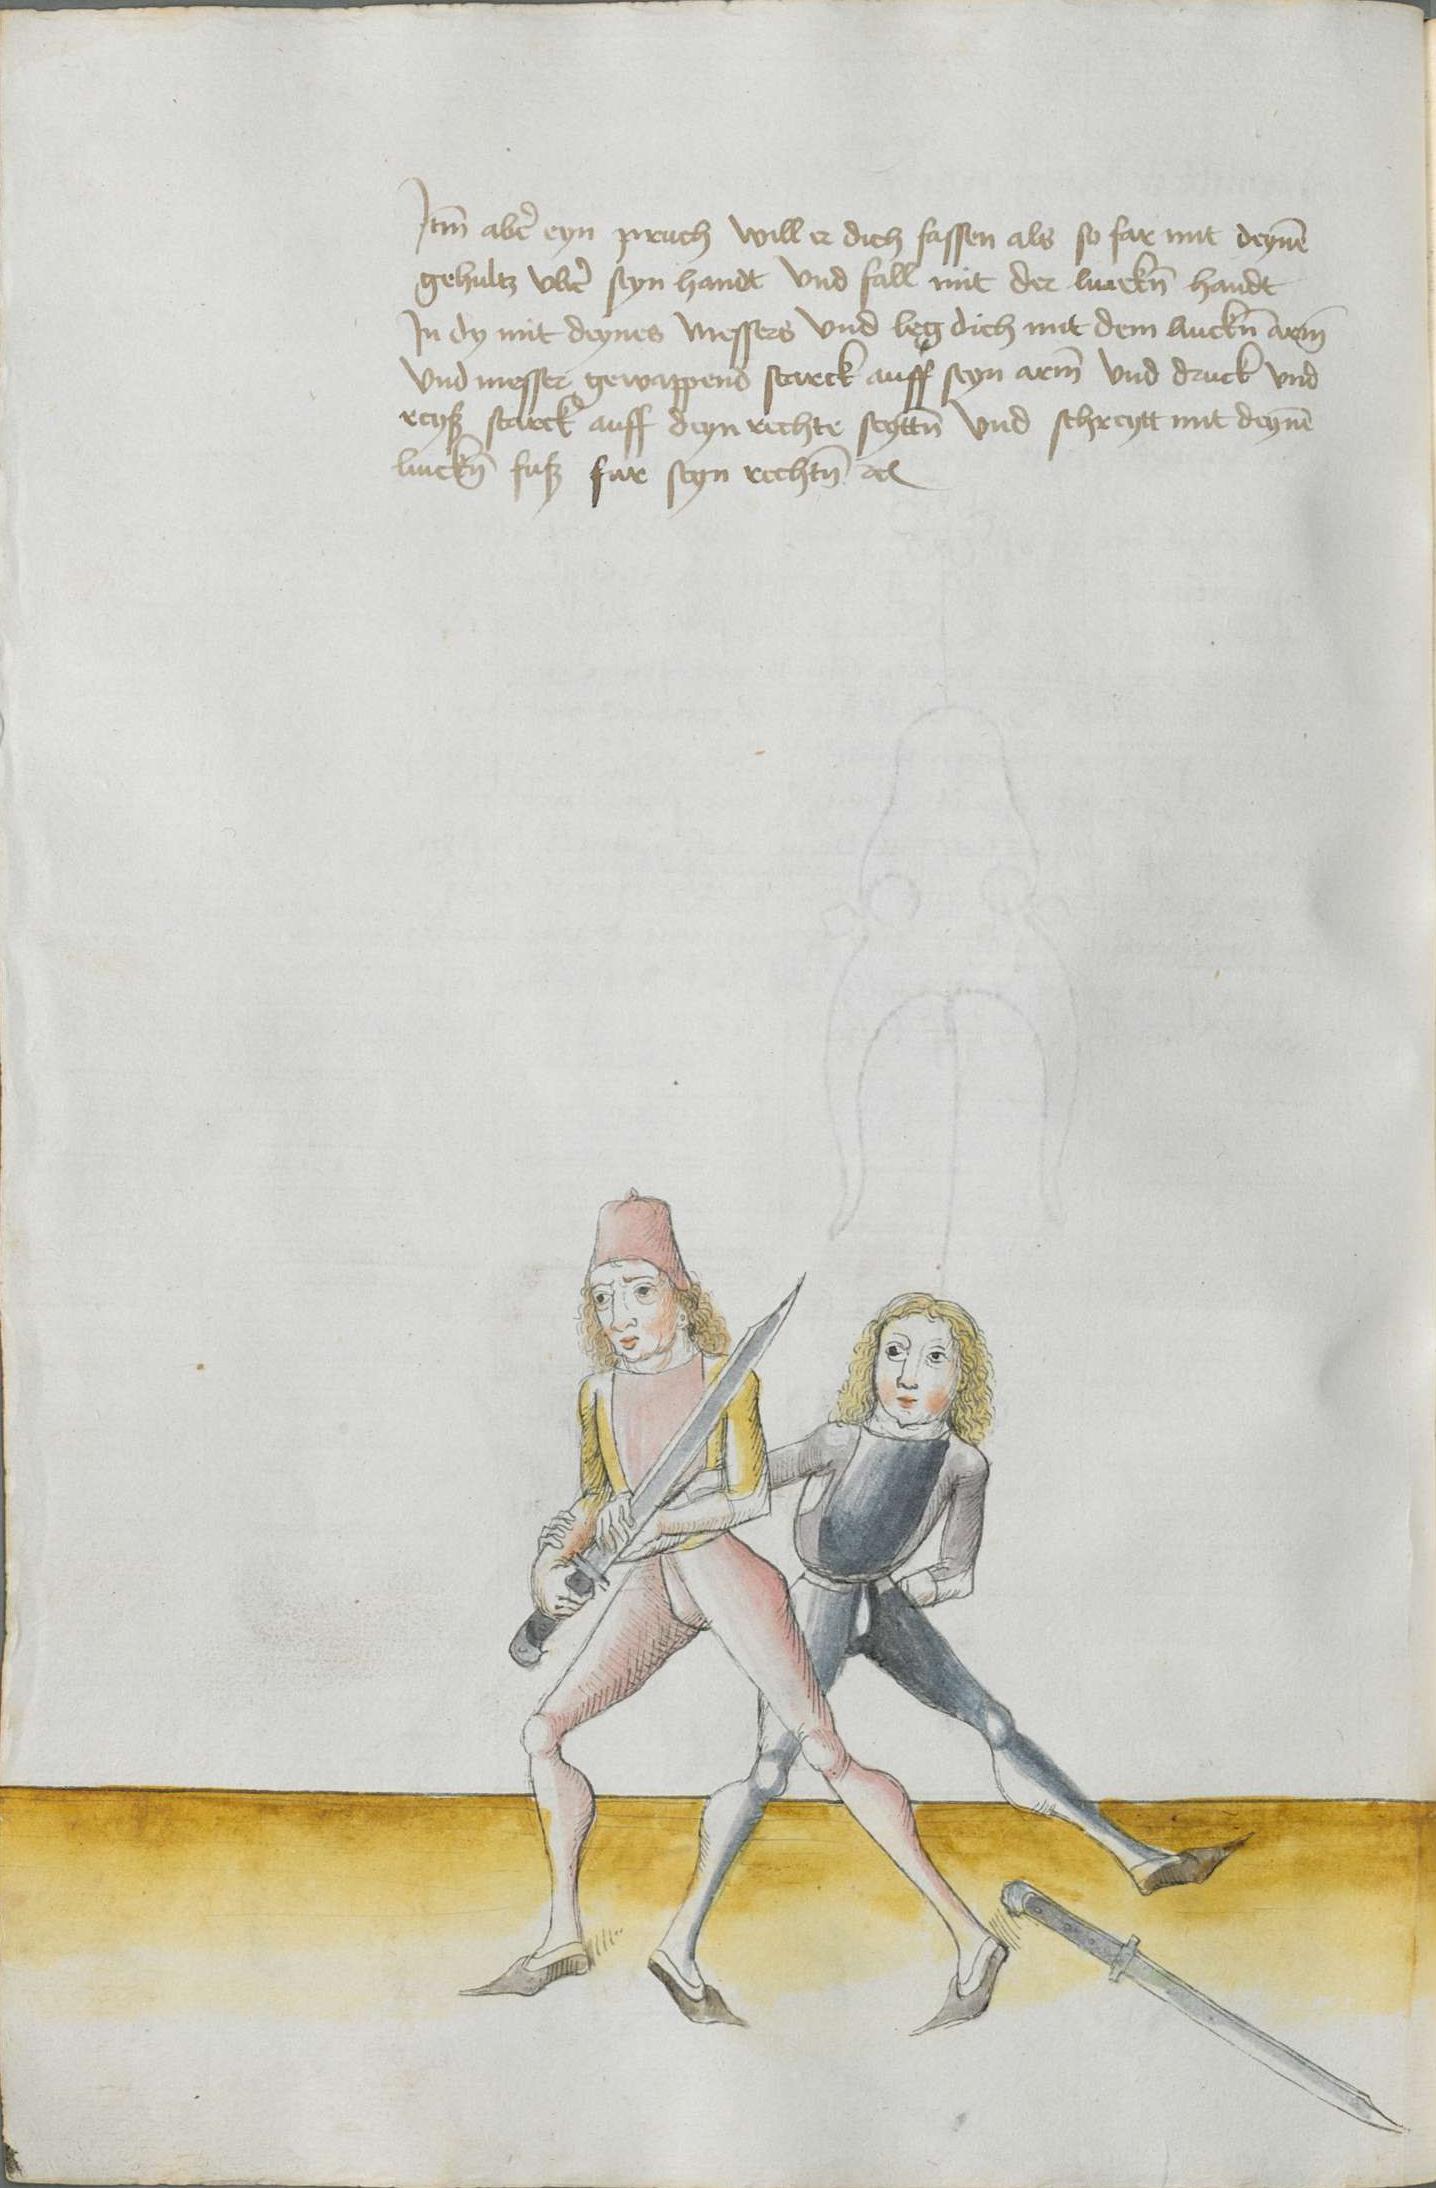 Itm̄ abe᷑ eyn pruch will er dich fassen als so far mit deyne᷑
gehultz vbe᷑ seyn handt Vnd fall mit der linckn̄ handt
In dy mit deynes Messers Vnd leg dich mit dem linckn̄ arm̄
Vnd messer gewappend starck auff seyn arm̄ Vnd druck vnd
reyß starck auff deyn rechte seyttn̄ Vnd schreytt mit deyne᷑
linckn̄ fuß far seyn rechtn̄ ꝛc